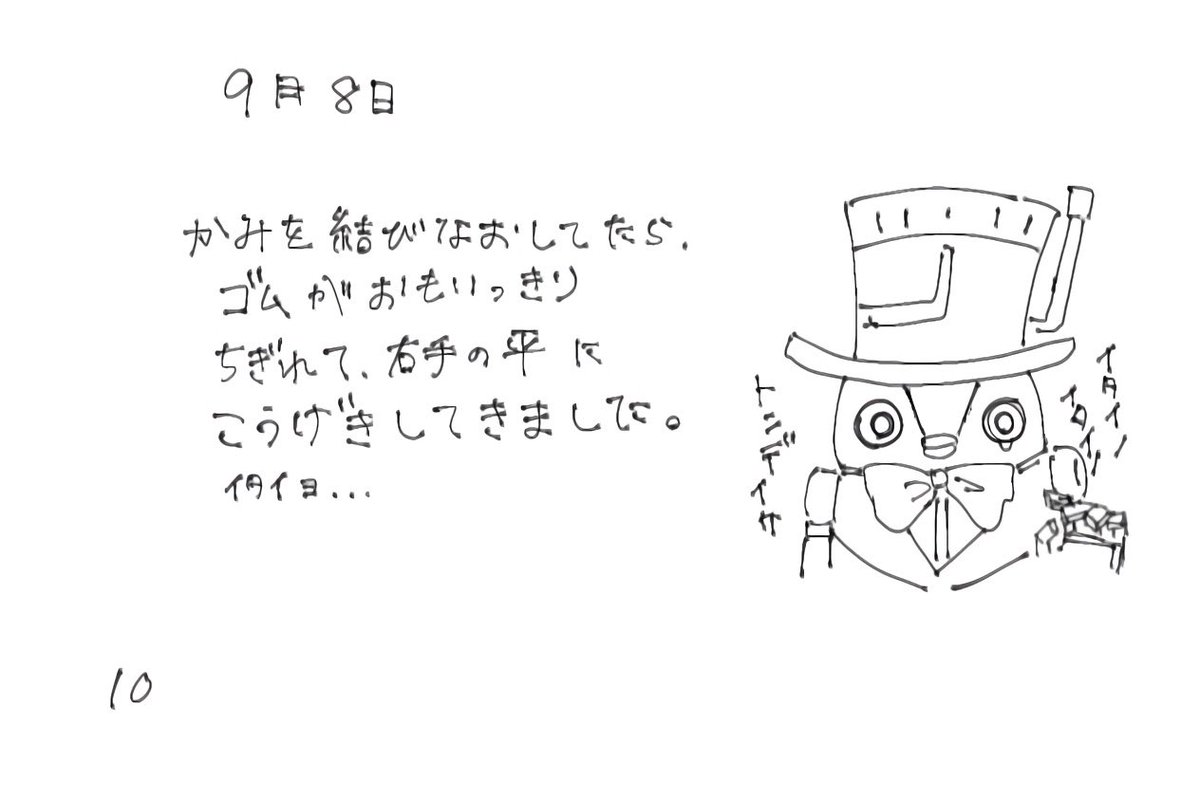 9月8日
かみを結びなおしてたら、
ゴムがおもいっきり
ちぎれて、右手の平に
こうげきしてきました。
イタイヨ...
イタイ
イタイ
10